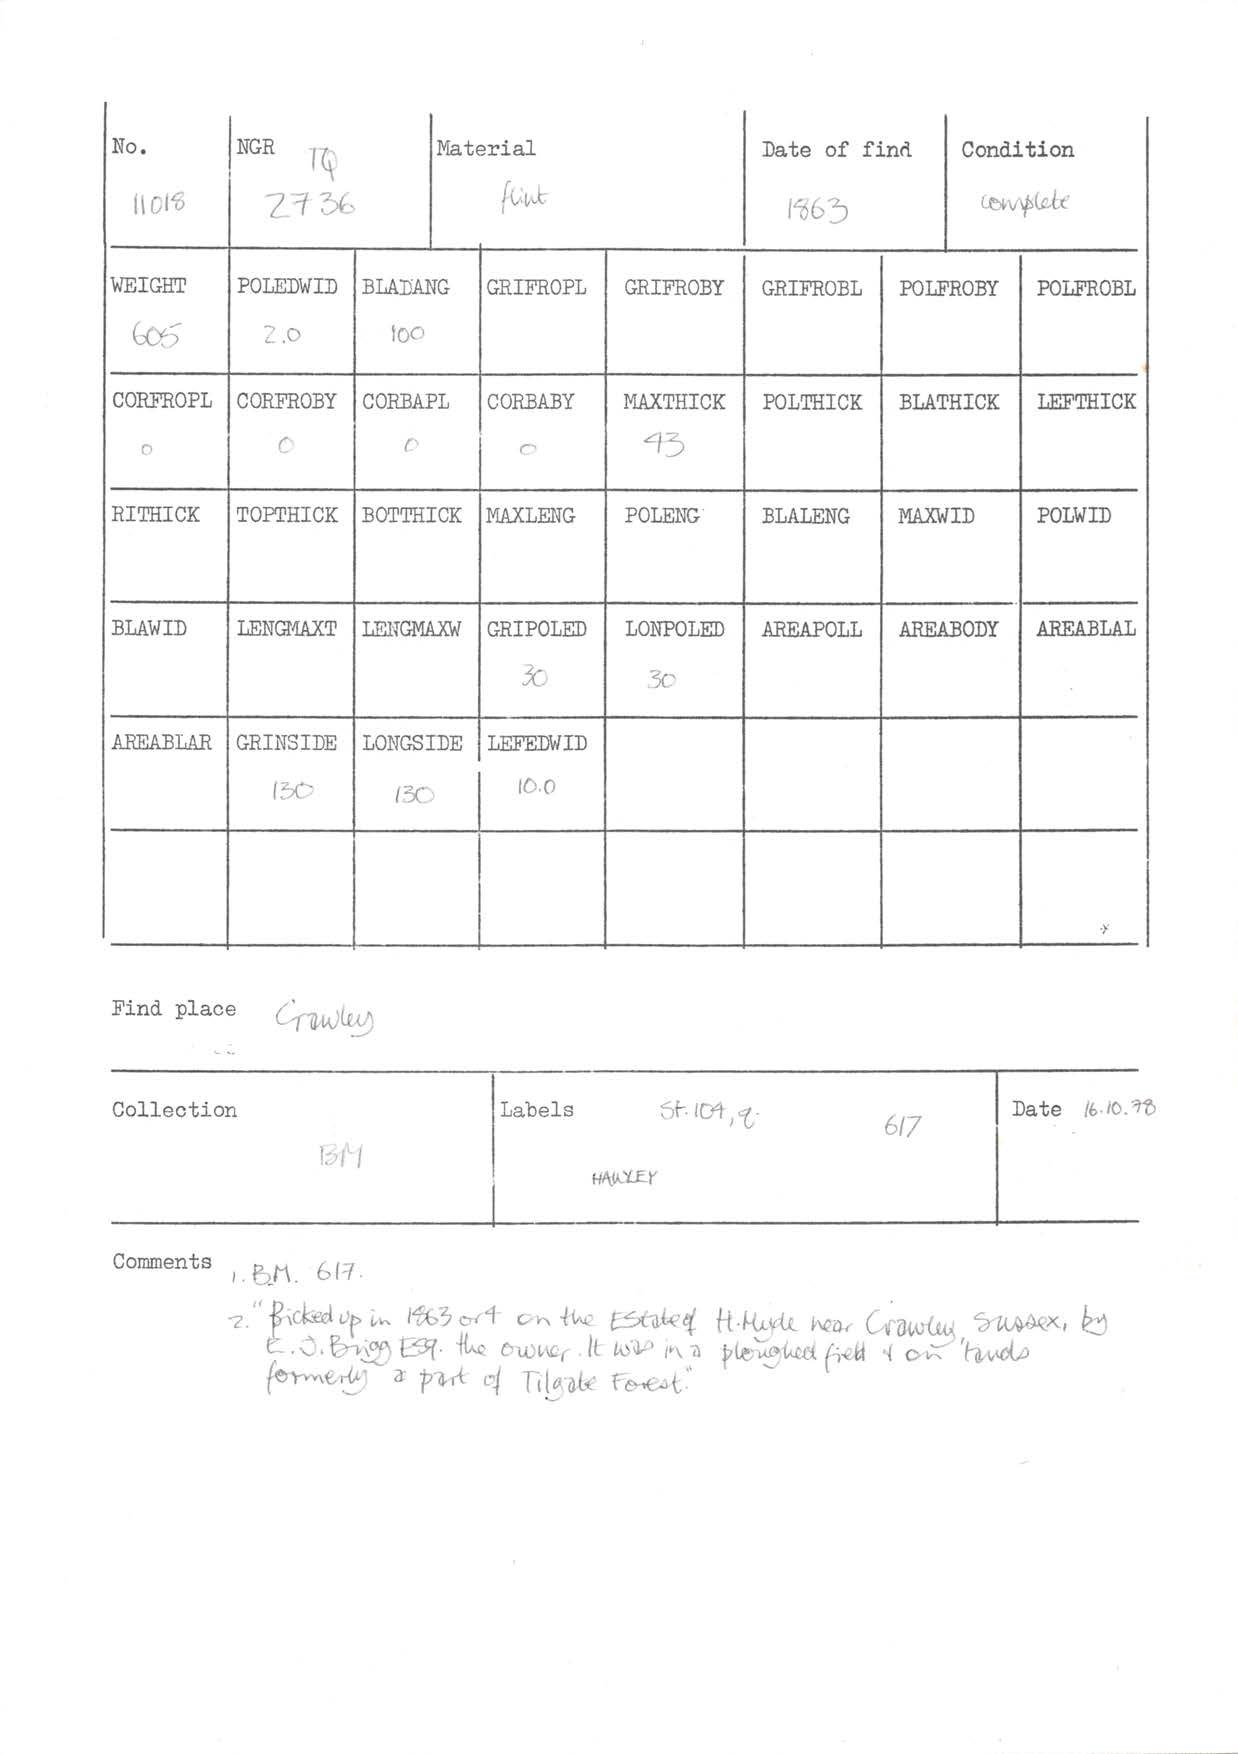 No. NGR TQ Material Date of find Condition
11018 2736 flint 1863 complete
WEIGHT POLEDWID BLADANG GRIFROPL GRIFROBY GRIFROBL POLFROBY POLFROBL
605 2.0 100
CORFROPL CORFROBY CORBAPL CORBABY MAXTHICK POLTHICK BLATHICK LEFTHICK
0 0 0 0 43
RITHICK TOPTHICK BOTTHICK MAXLENG POLENG BLALENG MAXWID POLWID
BLAWID LENGMAXT LENGMAXW GRIPOLED LONPOLED AREAPOLL AREABODY AREABLAL
30 30
AREABLAR GRINSIDE LONGSIDE LEFEDWID
130 130 10.0
Find place Crawley
Collection Labels St. 104, q. 617 Date 16.10.78
BM HAWLEY
Comments 1. B.M. 617.
2. "Picked up in 1863 or 4 on the Estate of H. Hyde near Crawley, Sussex, by
E. J. Brigg Esq. the owner. It was in a ploughed field & on lands
formerly a part of Tilgate Forest."